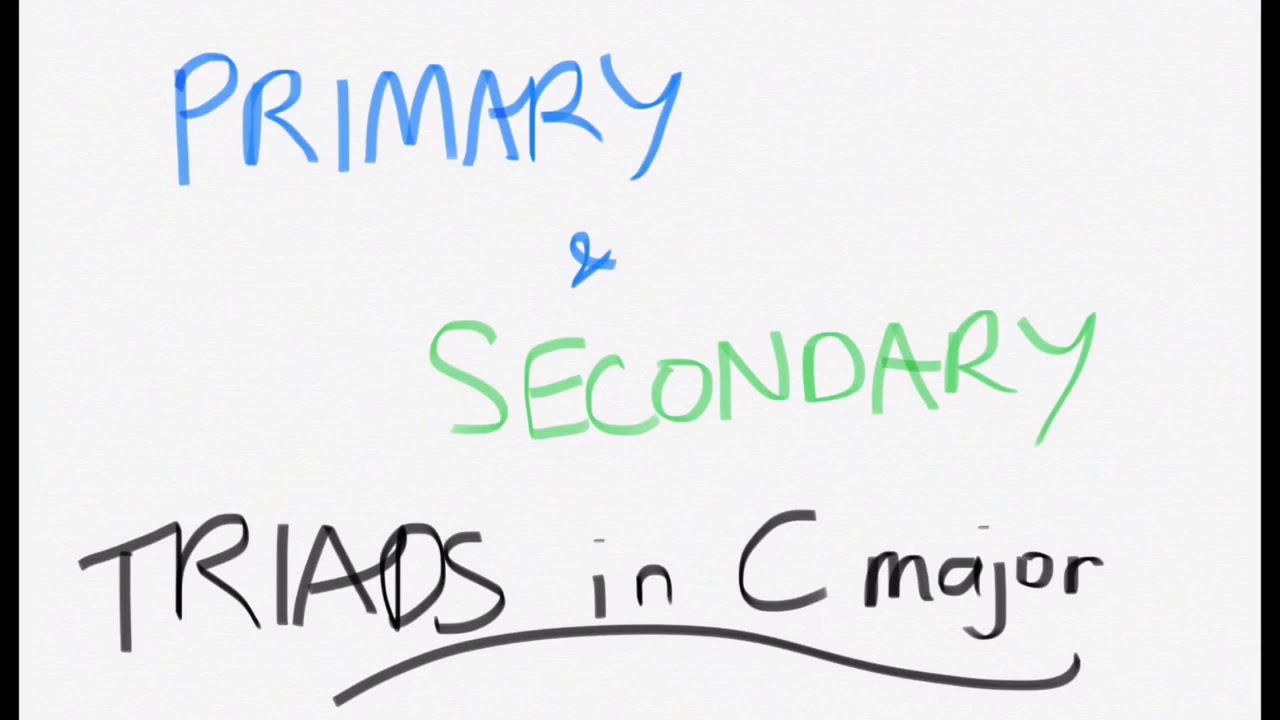 PRIMARY
&
SECONDARY
TRIADS in C major